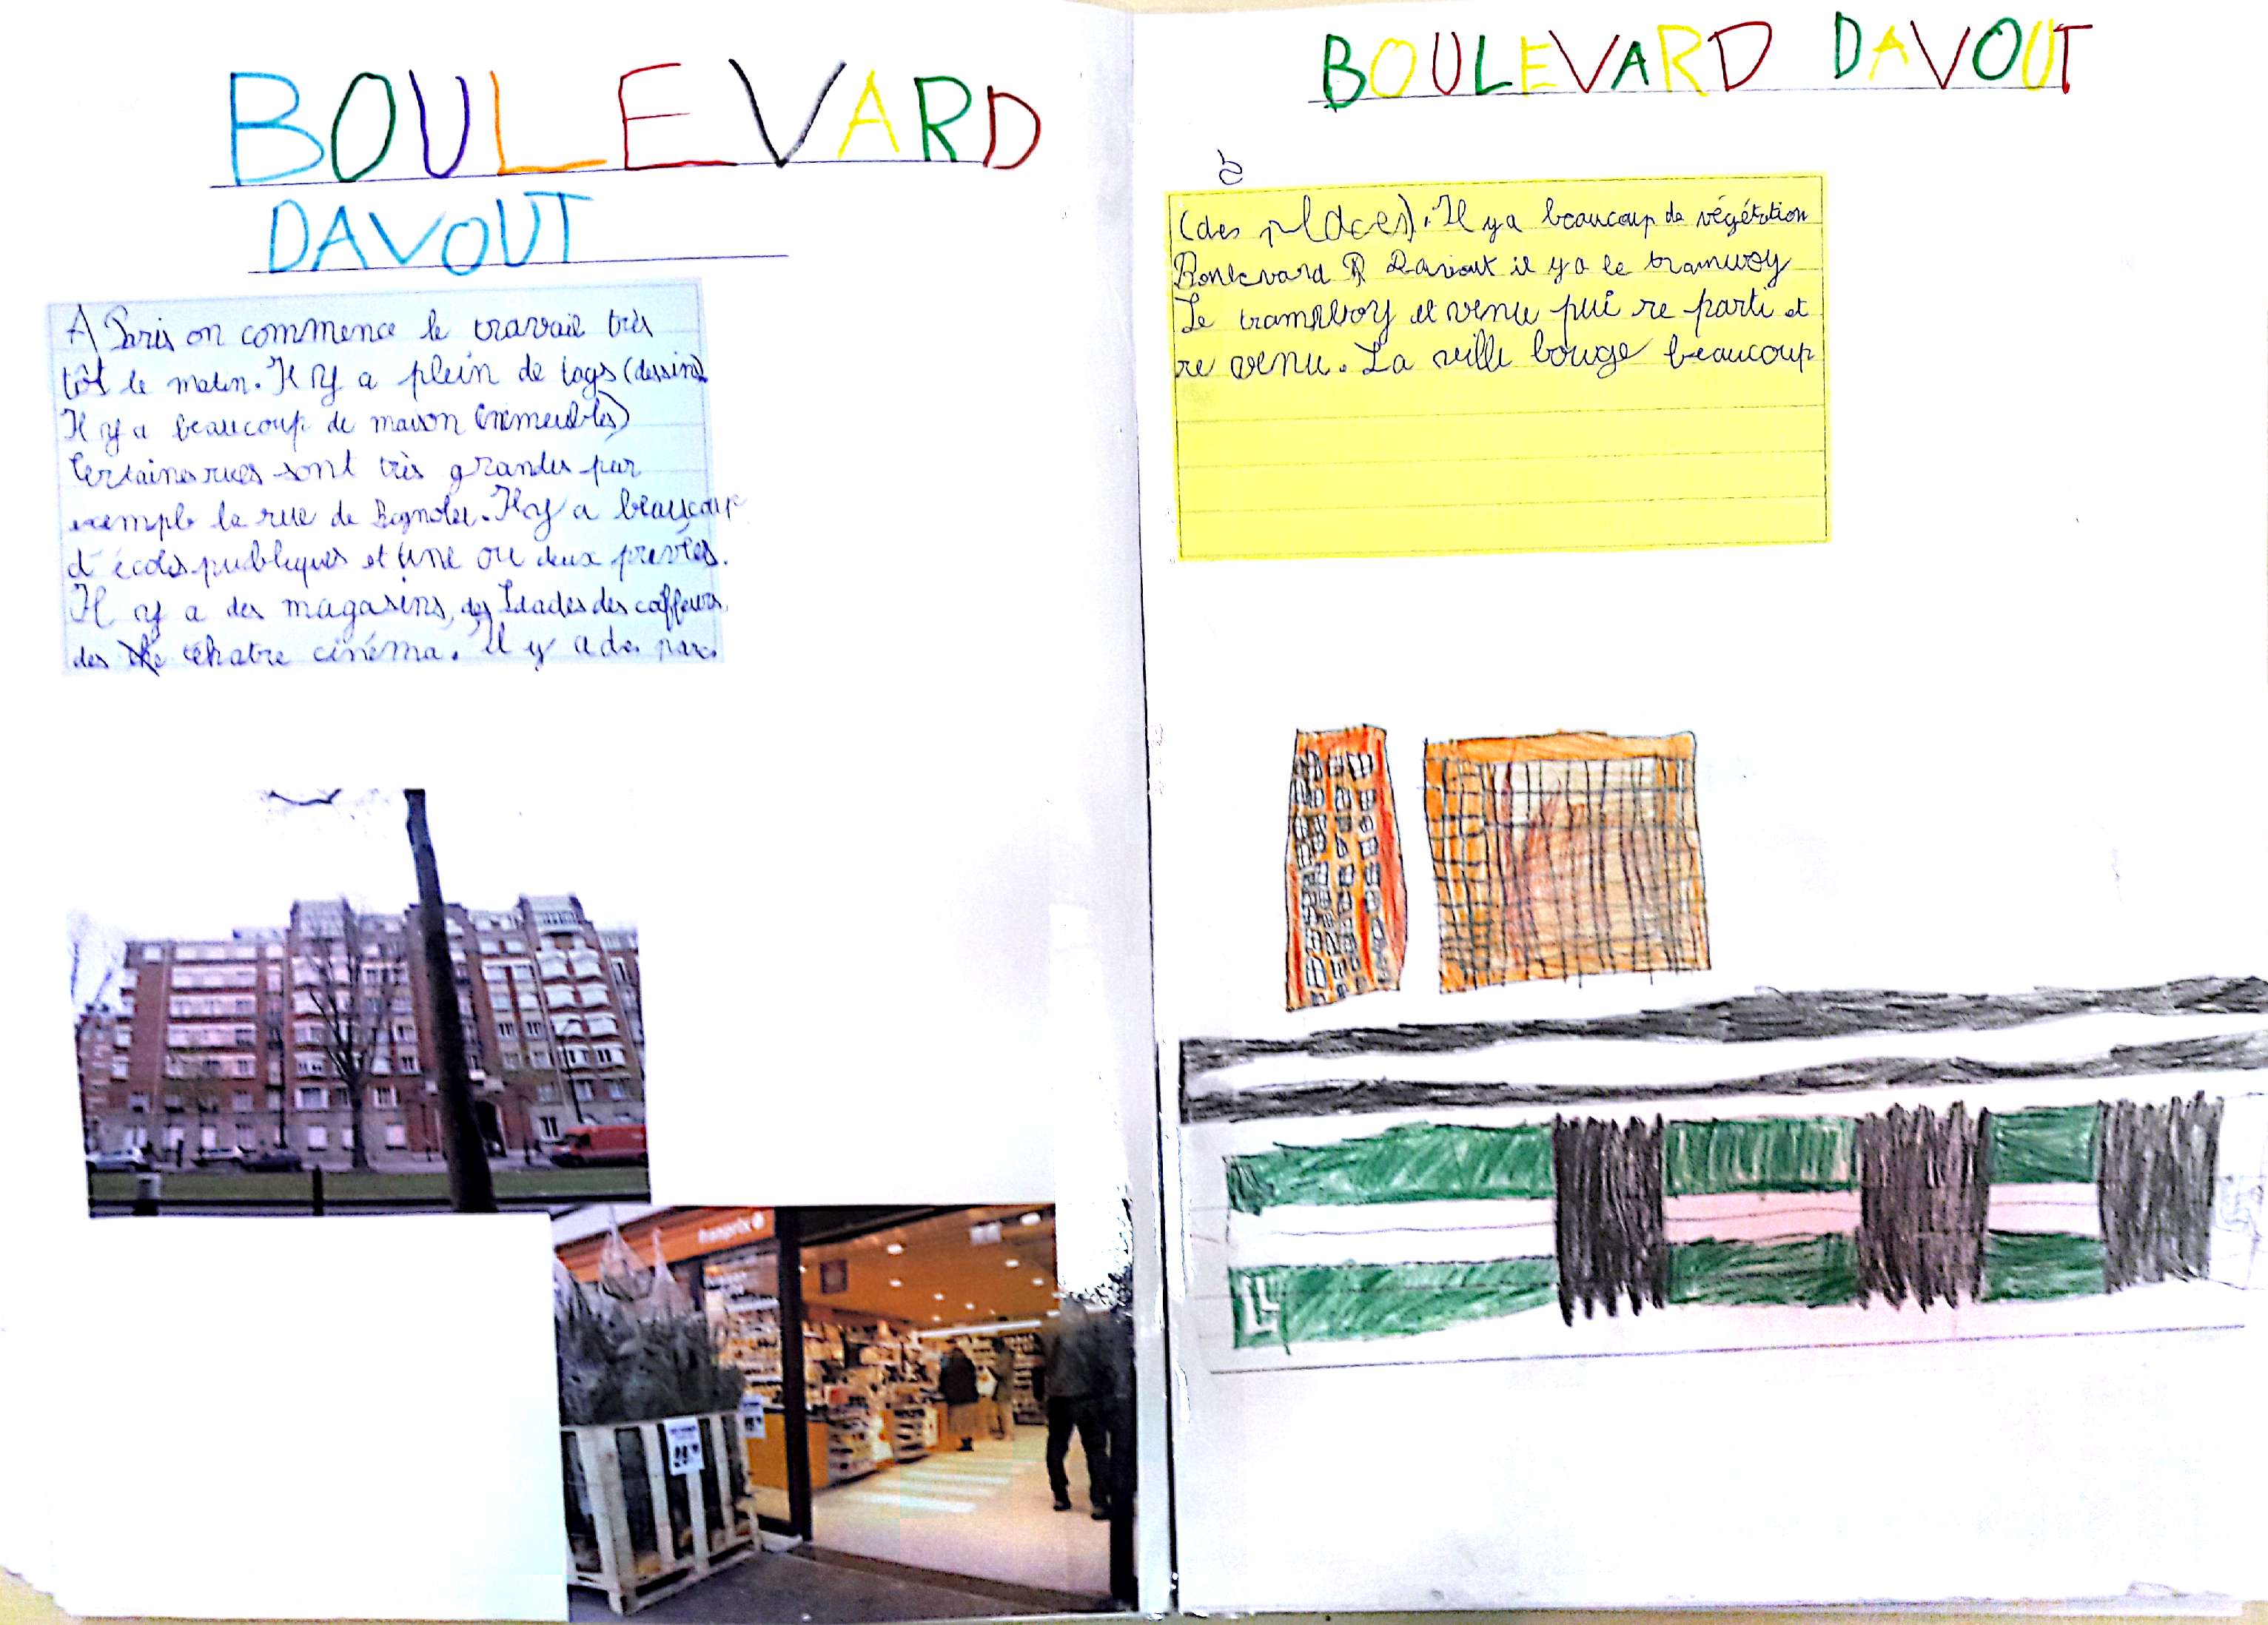 BOULEVARD
DAVOUT
A Paris on commence le travail très
tôt le matin. Il y a plein de tags (dessins)
Il y a beaucoup de maison (immeubles)
Certaines rues sont très grandes par
exemple la rue de Bagnolet. Il y a beaucoup
d'écoles publiques et une ou deux privées.
Il y a des magasins, des stades des coiffeurs,
des théatre cinéma. Il y a des parcs
franprix
BOULEVARD DAVOUT
(des places). Il y a beaucoup de végétation
Boulevard Davout il y a le tramway
Le tramway et venu pui re parti et
re venu. La ville bouge beaucoup